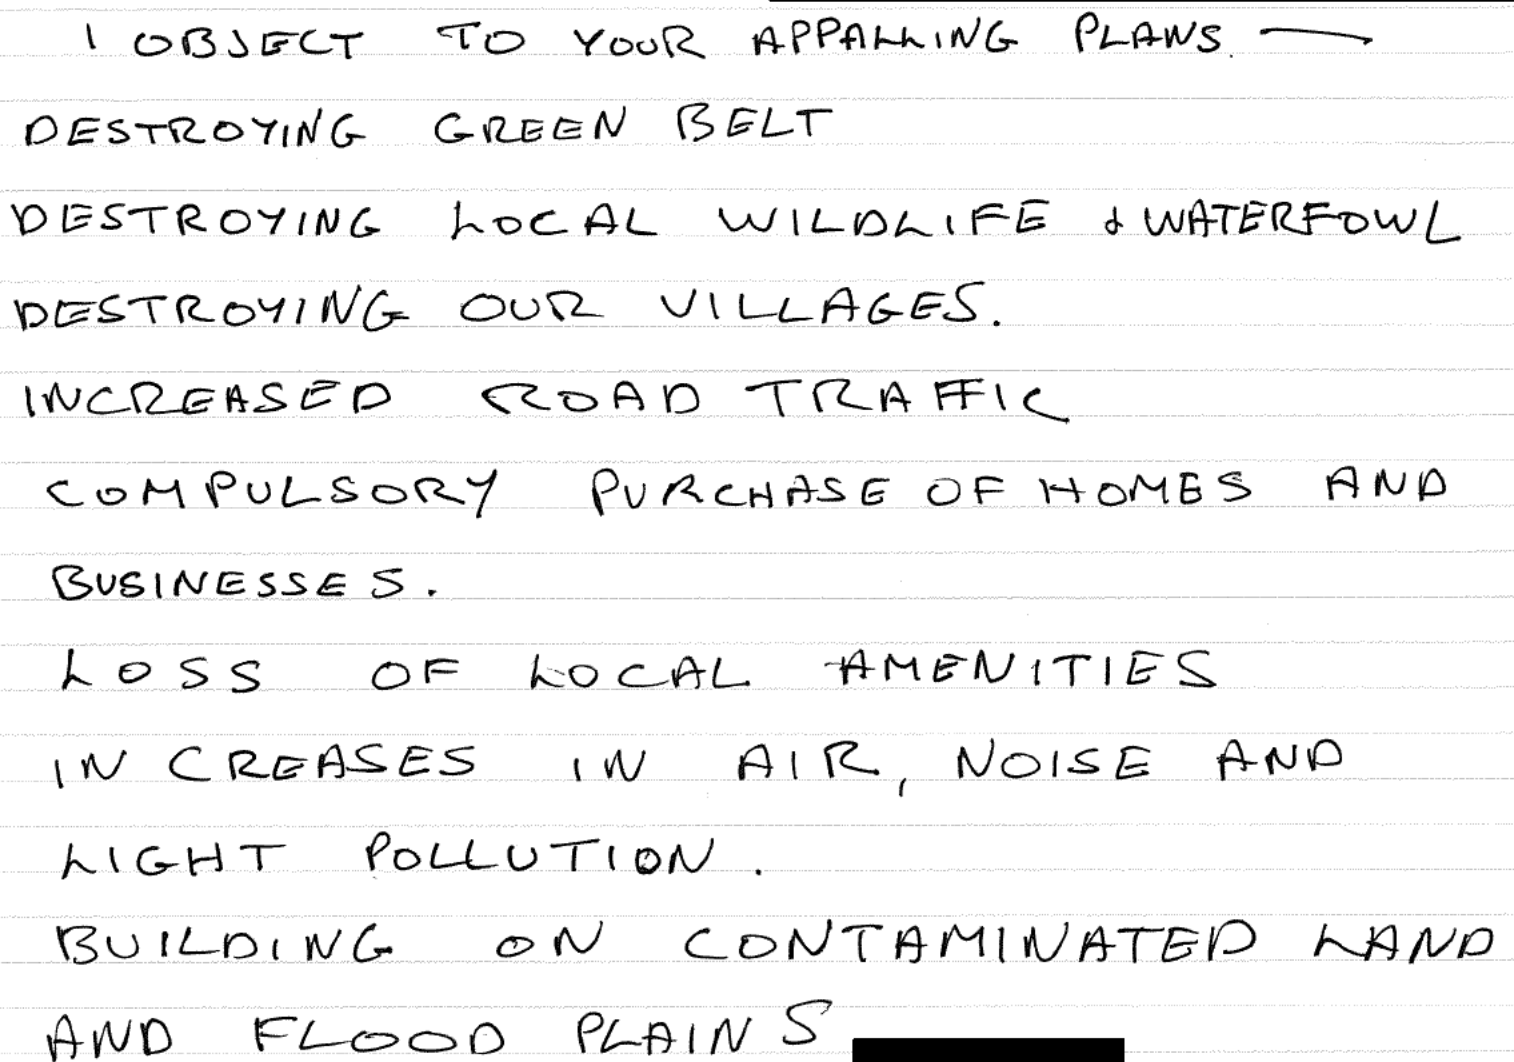 I OBJECT TO YOUR APPALLING PLANS. —
DESTROYING GREEN BELT
DESTROYING LOCAL WILDLIFE & WATERFOWL
DESTROYING OUR VILLAGES.
INCREASED ROAD TRAFFIC
COMPULSORY PURCHASE OF HOMES AND
BUSINESSES.
LOSS OF LOCAL AMENITIES
INCREASES IN AIR, NOISE AND
LIGHT POLLUTION.
BUILDING ON CONTAMINATED LAND
AND FLOOD PLAINS